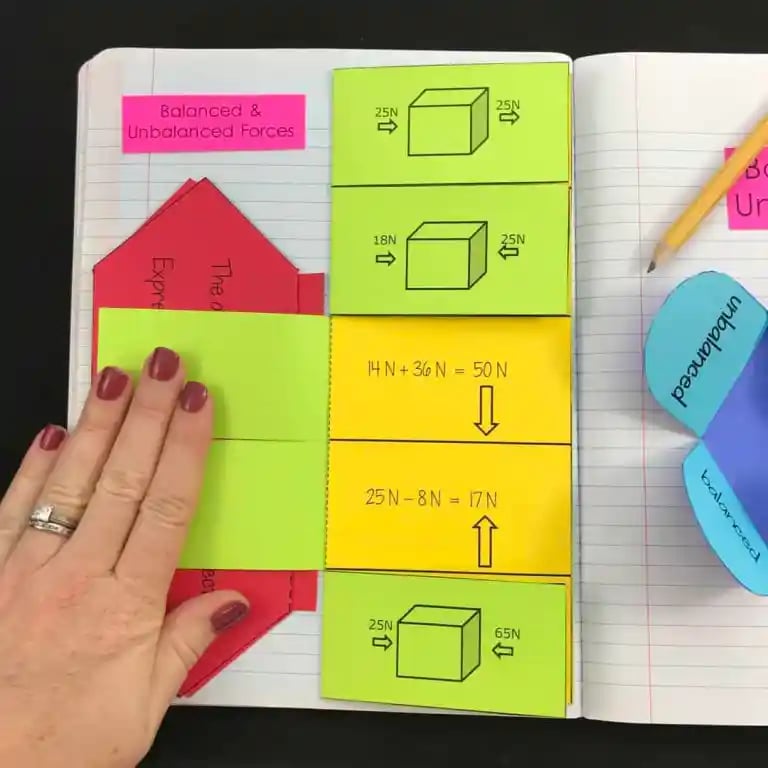 Balanced &
Unbalanced Forces
25N 25N
18N 25N
14 N + 36 N = 50 N
25 N – 8 N = 17 N
25N 65N
The
unbalanced
balanced